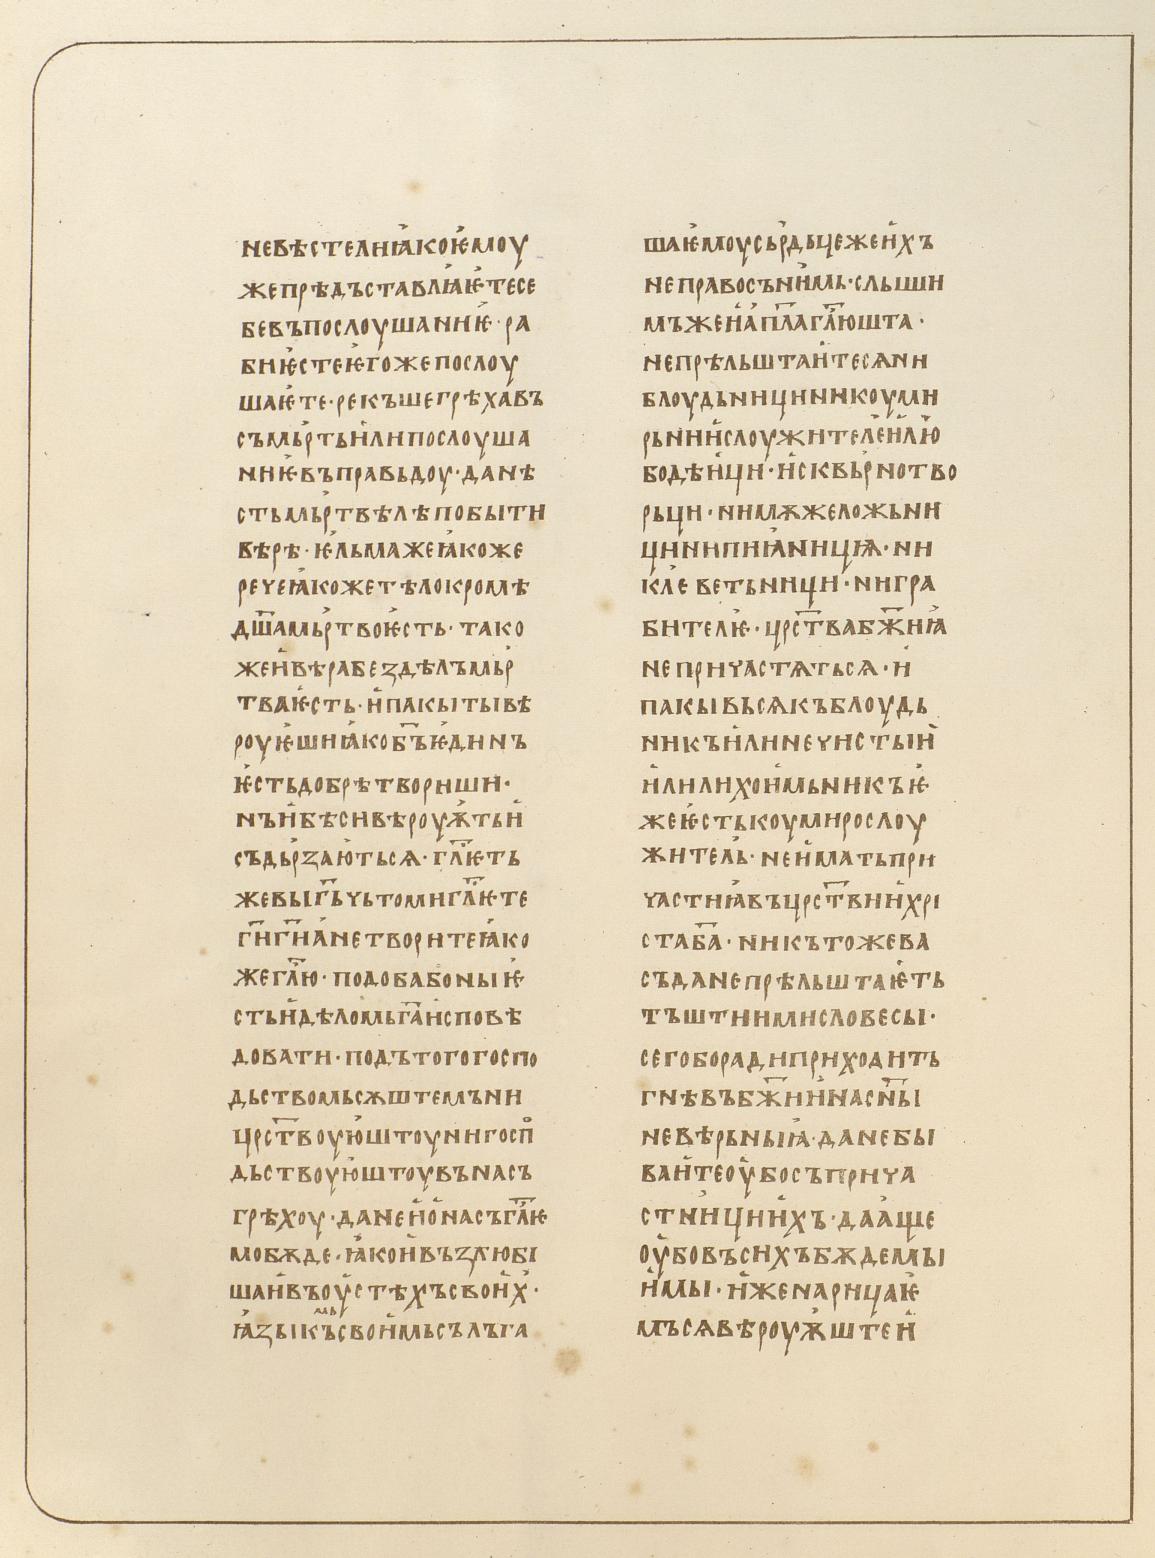 не вѣсте ли ꙗко ѥмоу
же прѣдъставлꙗѥте се
бе въ послоушаниѥ · ра
би ѥсте ѥгоже послоу
шаѥте · рекъше грѣха въ
съмьрть или послоуша
ниѥ въ правьдоу · да нѣ
сть мьртвѣ лѣпо быти
вѣрѣ · ѥльма же ꙗкоже
рече ꙗкоже тѣло кромѣ
дш҃а мьртво ѥсть · тако
же и вѣра без дѣлъ мьр
тва ѥсть · и пакы ты вѣ
роуѥши ꙗко б҃ъ ѥдинъ
ѥсть добрѣ твориши ·
нъ и бѣси вѣроуѭть и
съдьрзаються · гл҃ѥть
же вы г҃ь чьто ми гл҃ѥте
г҃и г҃и а не творите ꙗко
же гл҃ю · подоба бо ны ѥ
сть и дѣломь г҃а исповѣ
довати · подъ того госпо
дьствомь сѫштемъ ни
црс҃твоуюштоу ни госп
дьствоуюштоу въ насъ
грѣхоу · да не и о насъ гл҃ѥ
мо бѫде · ꙗко и възлюби
ша и въ оустѣхъ своих ·
ꙗзыкъмь своимь сълъга
ша ѥмоу сьрдьце же ихъ
не право съ нимь · слыши
мъ же и ап҃ла гл҃юшта ·
не прѣльштаите сѧ ни
блоудьници ни коуми
рьнии слоужителе и лю
бодѣици · и сквьрнотво
рьци · ни мѫжеложьни
ци ни пиꙗницѩ · ни
клеветьници · ни гра
бителѥ · црс҃тва бж҃иꙗ
не причастѧться · и
пакы вьсѧкъ блоудь
никъ или нечистыи
или лихоимьникъ ѥ
же ѥсть коумирослоу
житель · не имать при
частиꙗ въ црс҃твии хрі
ста б҃а · никътоже ва
съ да не прѣльштаѥть
тъштиими словесы ·
сего бо ради приходить
гнѣвъ бж҃ии на сн҃ы
невѣрьныꙗ · да не бы
ваите оубо съприча
стници ихъ · да аще
оубо въ сихъ бѫдемы
и мы · иже нарицаѥ
мъ сѧ вѣроуѭште и